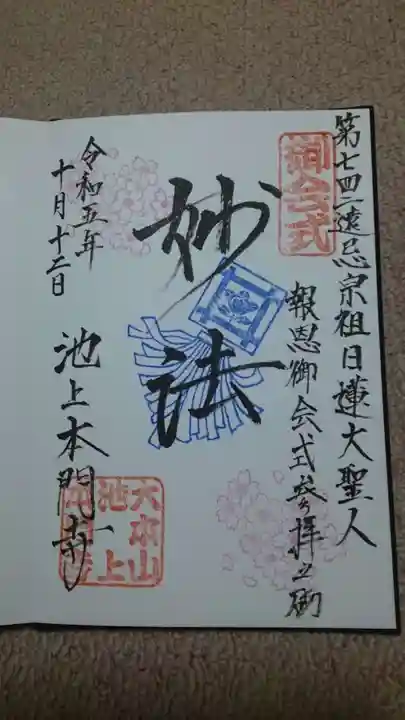 第七四二遠忌宗祖日蓮大聖人
御会式
報恩御会式参拝之砌
妙法
令和五年
十月十二日
池上本門寺
大本山
池上
本門寺